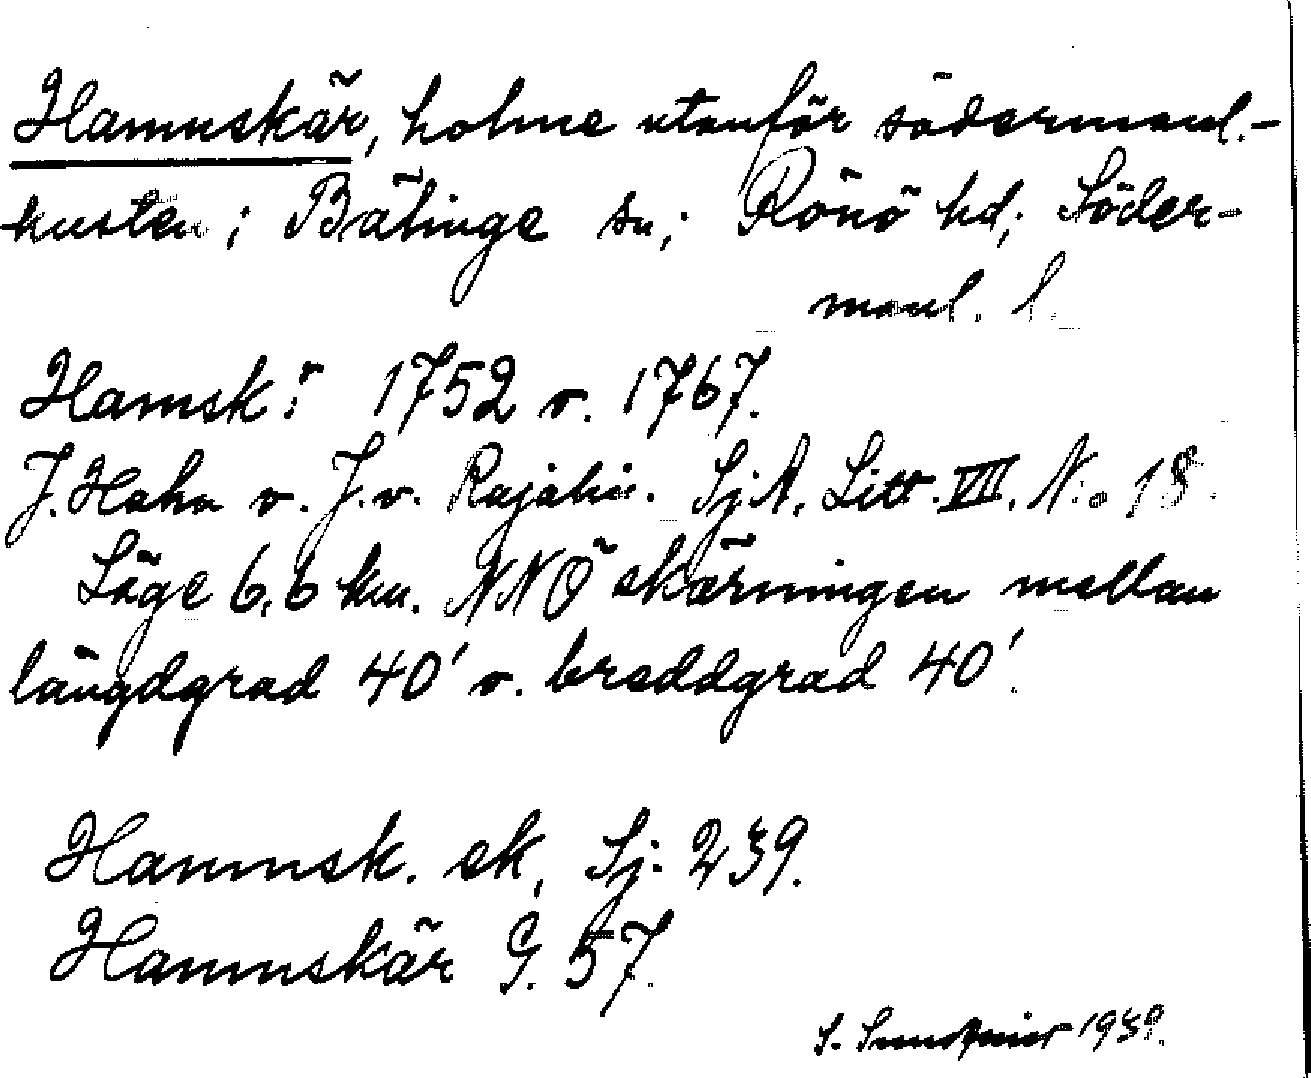 Hamnskär, holme utanför södermanl.-
kusten; Bälinge sn; Rönö hd; Söder-
manl. l.
Hamsk:r 1752 o. 1767.
J. Hahn o. J. v. Rajalin. SjA. Litt. VIII. N:o 18.
Läge 6,6 km. NNÖ skärningen mellan
längdgrad 40' o. breddgrad 40'.
Hamnsk. ek. Sj. 239.
Hamnskär G. 57.
S. 1939.